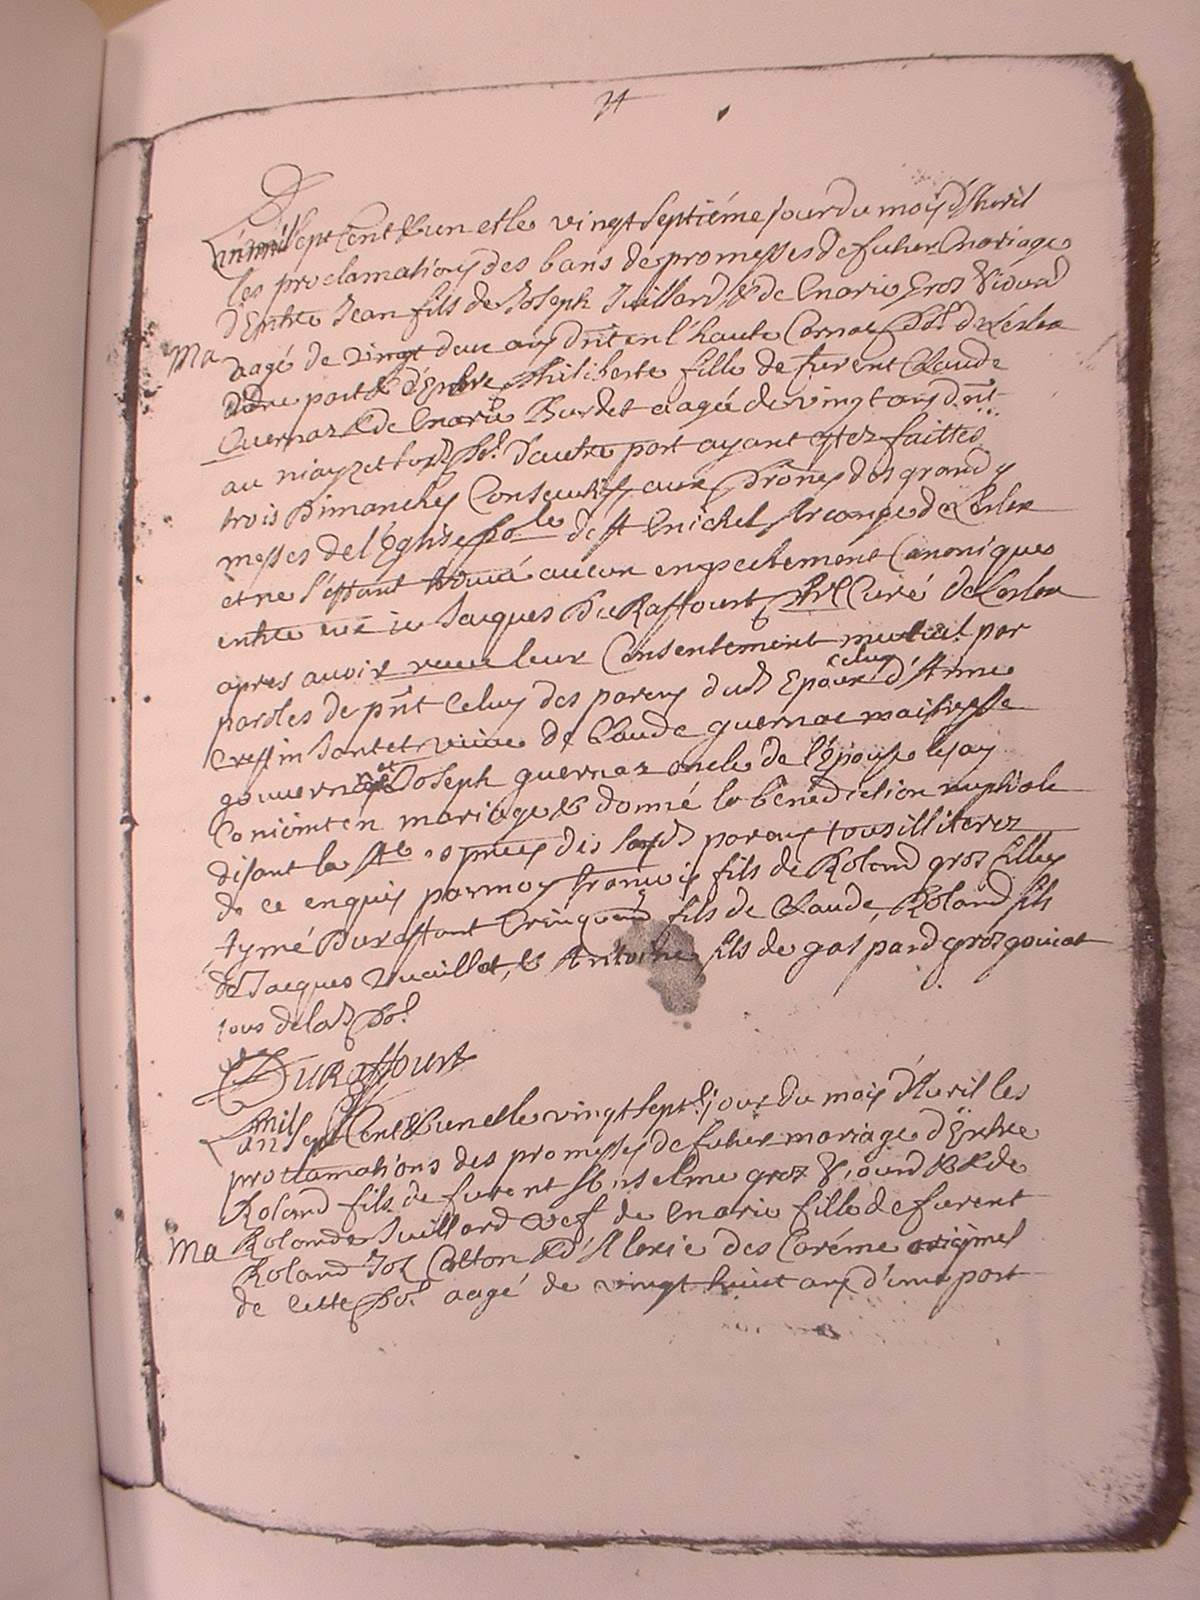 24
L'an mil sept Cent & un et le vingt septiéme jour du mois d'Avril
les proclamations des bans de promesses de futur Mariage
d'Entre Jean fils de Joseph Juillard & de Marie Groz Viduard
Ma aagé de vingt deux ans dnt en l'haute
d'une part & d'Entre Philiberte fille de furent Claude
Guernaz & de Marie Burdet aagée de vingt ans dnt
au d'autre part ayant estez faittes
trois Dimanches Consecutifs aux Prônes des grands
messes de l'Eglise de st Michel Arcange de
et ne s'estant trouvé aucun empechement Canonique
entre eux ie Jacques DuRaffourt Curé de
apres avoir receu leur Consentement mutuel par
paroles de pnt Celuy des parens dud Epoux celuy d'Anne
veuve de Claude guernaz maistresse
Joseph guernaz oncle de l'Epouse les ay
Conioint en mariage & donné la bénédiction nuptiale
disant la ste parens tous illiterez
de ce enquis par moy francois fils de Roland groz filley
Aymé Duraffourt fils de Claude, Roland fils
de Jacques Vuaillat, & Antoine fils de gaspard groz
tous de lad
DuRaffourt
L'an mil sept Cent & un et le vingt sept. jour du mois d'Avril les
proclamations des promesses de futur mariage d'Entre
Roland fils de furent groz Viduard & de
Ma Rolande Juillard vef de Marie fille de furent
Roland & d'Alexie des Caréme
de cette aagé de vingt huict ans d'une part